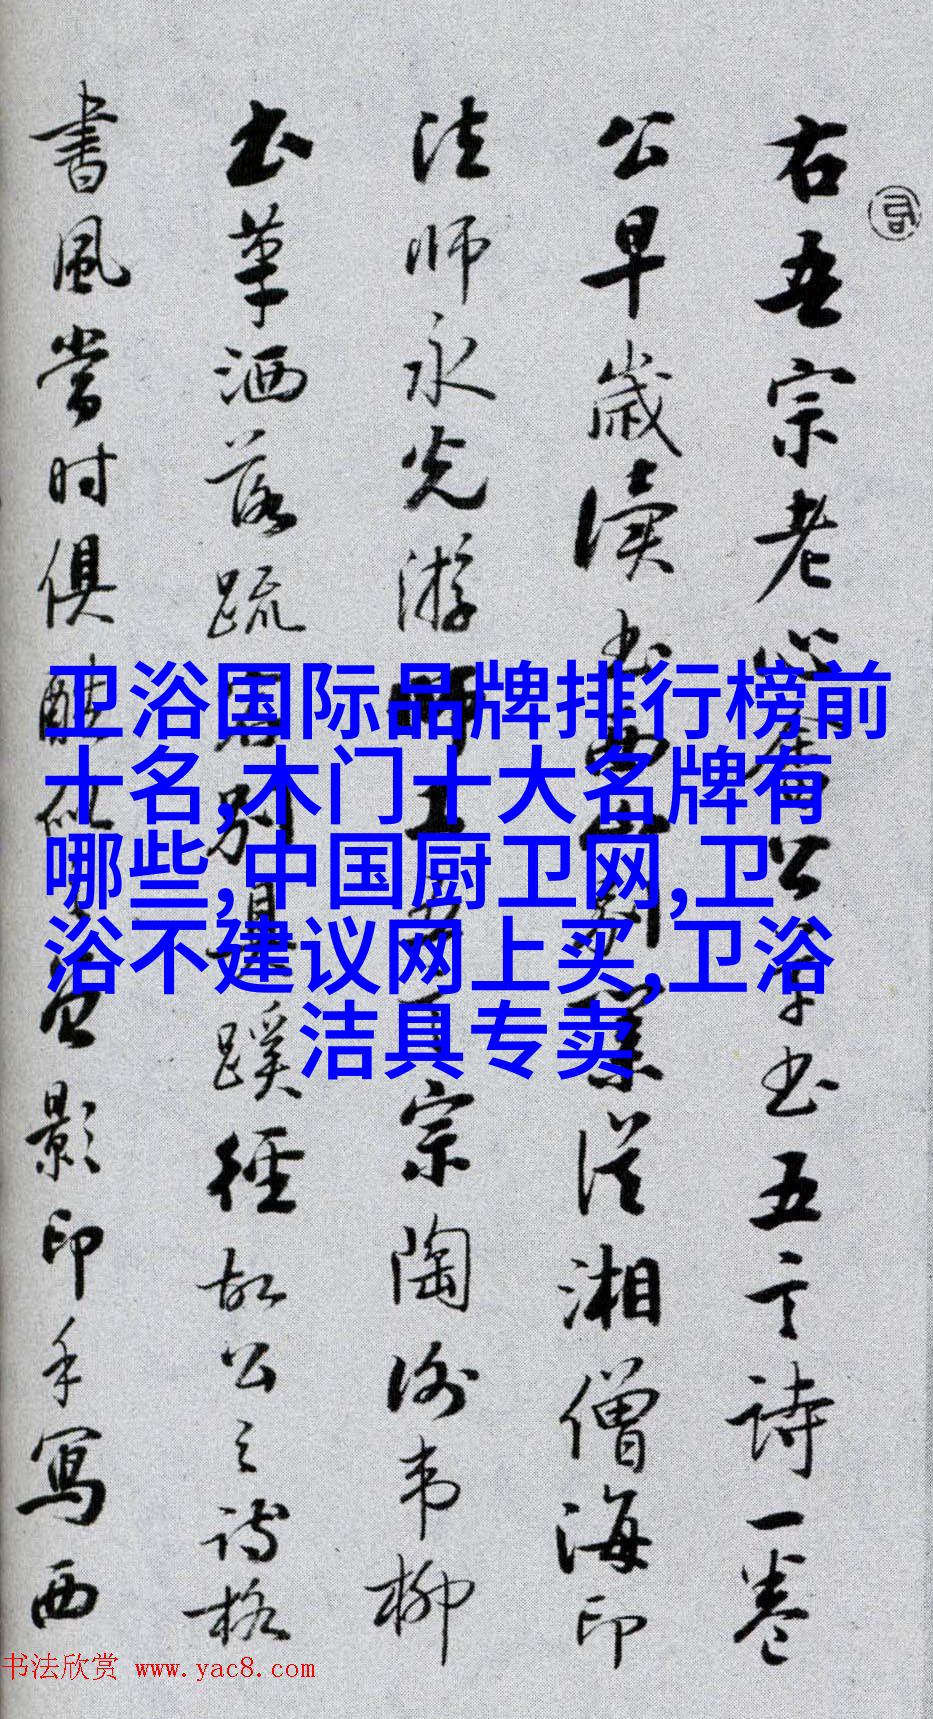 右吾宗老
公草书五言诗一卷
公早岁读书西山
业从湘僧海印
法师永光游师
宗陶谢韦柳
书草洒落疏
别具蹊径故公之诗格
書風當时俱
影印手写西
卫浴国际品牌排行榜前
十名,木门十大名牌有
哪些,中国厨卫网,卫
浴不建议网上买,卫浴
洁具专卖
书法欣赏 www.yac8.com